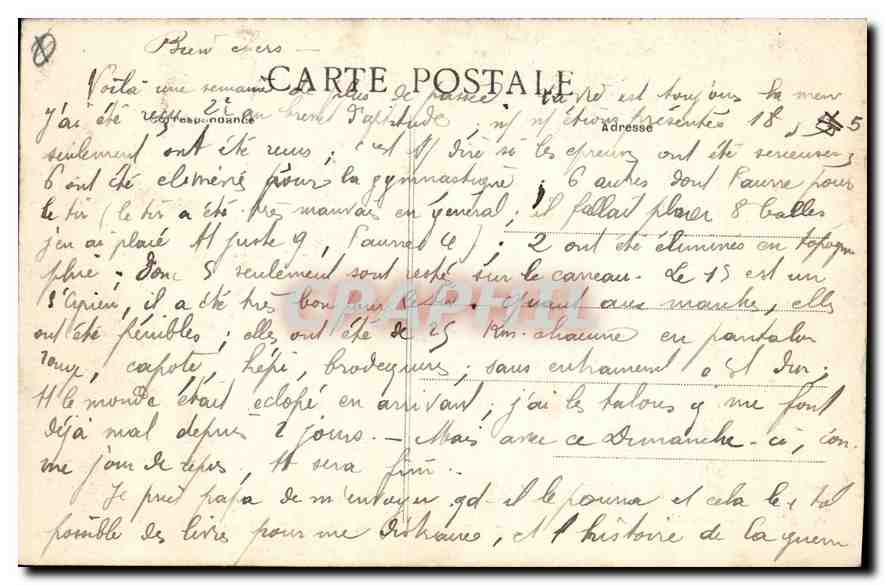 Bien chers —
CARTE POSTALE
Voilà une semaine de plus de passée. La vie est toujours la même
Correspondance
Adresse
j'ai été reçu 2e au brevet d'aptitude ; n/ n/ étions présentés 18 5
seulement ont été reçus ; c'est dire si les épreuves ont été sérieuses
6 ont été eliminés pour la gymnastique ; 6 autres dont Faurre pour
le tir (le tir a été très mauvais en général ; il fallait placer 8 balles
j'en ai placé juste 9, 4) ; 2 ont été éliminés en topogra
phie ; donc 5 seulement sont resté sur le carreau. Le 15 est un
il a été très bon sur le tir. Quant aux marches, elles
CPAPHIL
ont été pénibles ; elles ont été de 25 Km. chacune en pantalon
rouge, capote, képi, brodequins ; sans entrainement c'est dur ;
tt le monde était eclopé en arrivant ; j'ai les talons q/ me font
déjà mal depuis 2 jours. — Mais avec ce Dimanche-ci, com
me jour de repos, tt sera fini.
Je prie papa de m'envoyer qd il le pourra et cela le + tôt
possible des livres pour me distraire, et l'histoire de la guerre